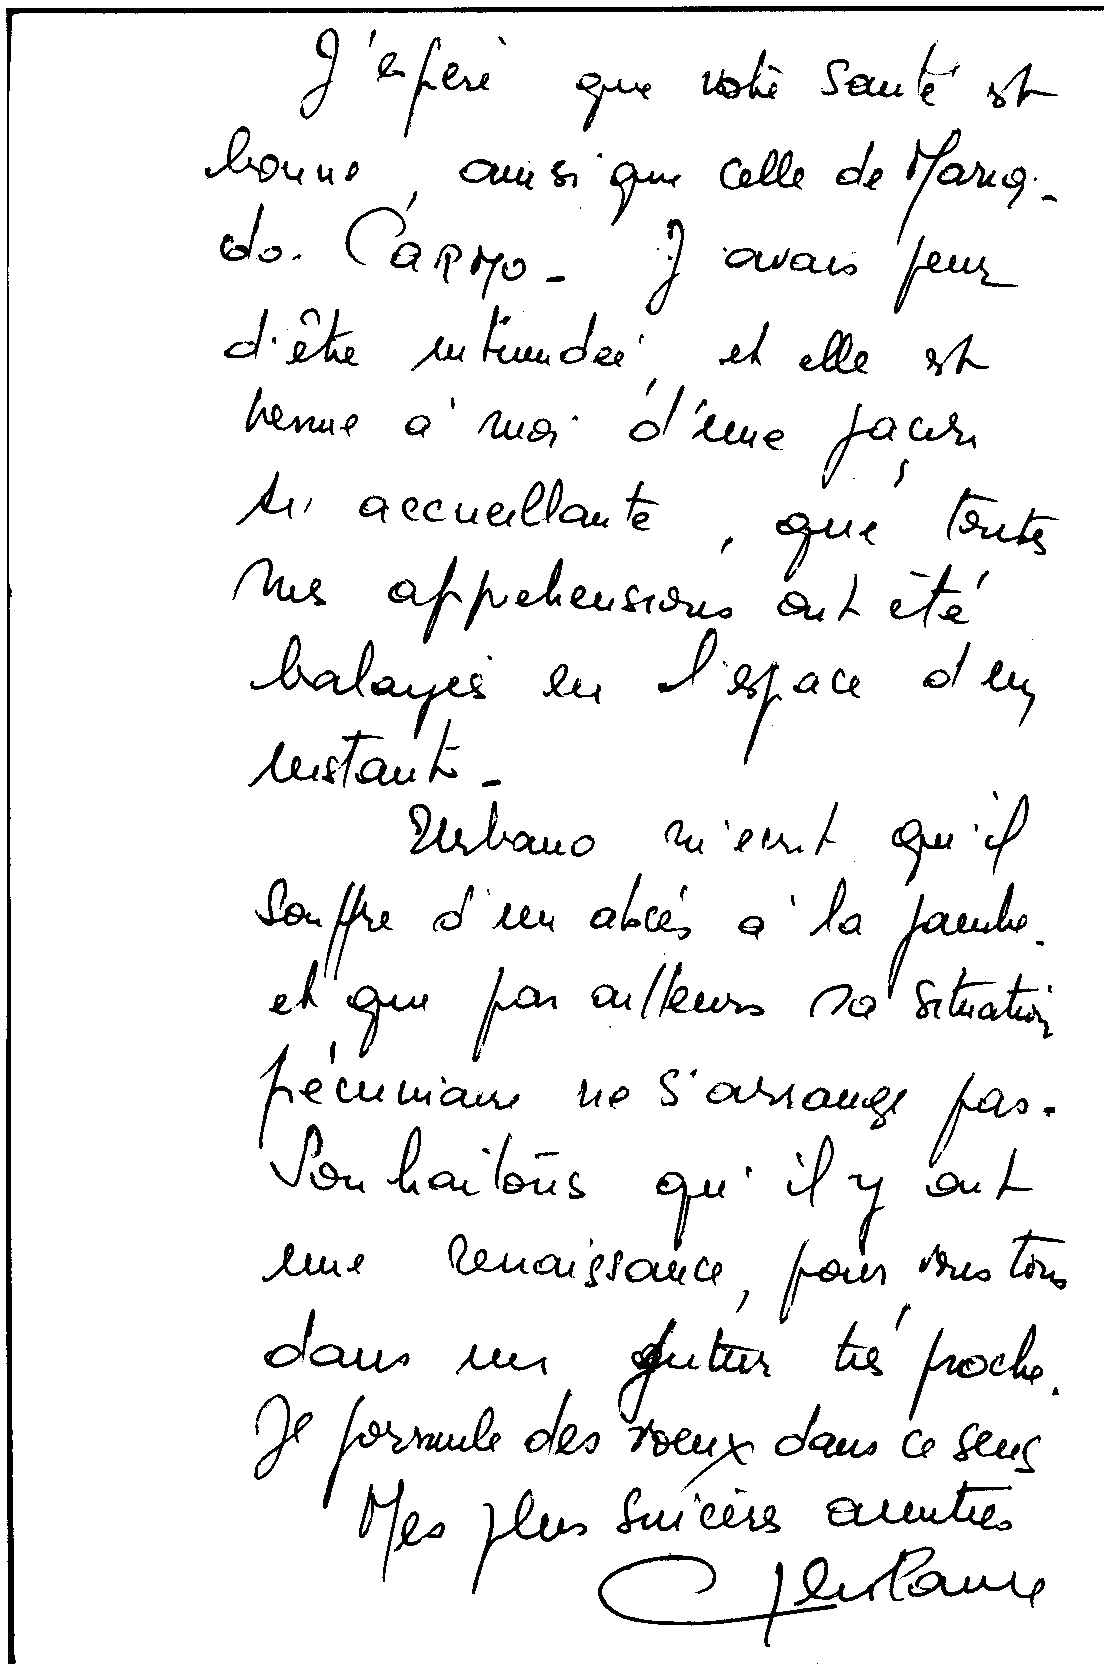 J'espère que votre santé est
bonne, ainsi que celle de Maria.
do. CARMO - J'avais peur
d'être intimidée, et elle est
venue à moi d'une façon
si accueillante, que toutes
mes appréhensions ont été
balayées en l'espace d'un
instant -
Urbano m'écrit qu'il
souffre d'un abcès à la jambe.
et que par ailleurs sa situation
pécuniaire ne s'arrange pas.
Souhaitons qu'il y ait
une renaissance, pour vous tous
dans un futur très proche.
Je formule des voeux dans ce sens
Mes plus sincères amitiés
Ghislaine